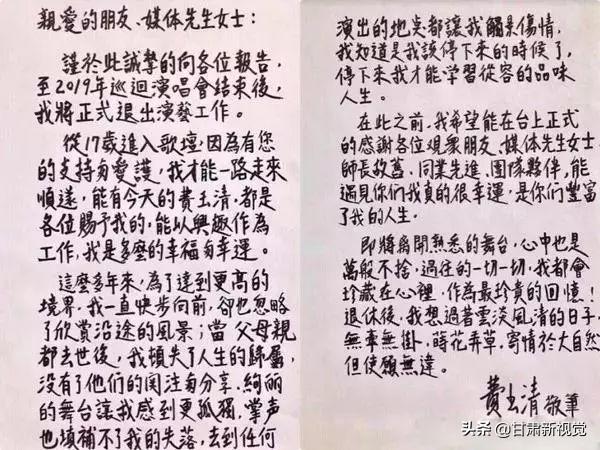 親愛的朋友、媒体先生女士：
謹於此誠摯的向各位報告，
至2019年巡迴演唱會結束後，
我將正式退出演藝工作。
從17歲進入歌壇，因為有您
的支持與愛護，我才能一路走來
順遂，能有今天的費玉清，都是
各位賜予我的，能以興趣作為
工作，我是多麼的幸福與幸運。
這麼多年來，為了達到更高的
境界，我一直快步向前，卻也忽略
了欣賞沿途的風景；當父母親
都去世後，我頓失了人生的歸屬，
沒有了他們的関注與分享，絢麗
的舞台讓我感到更孤獨，掌声
也填補不了我的失落，去到任何
演出的地点都讓我觸景傷情，
我知道是我該停下來的時候了，
停下來我才能學習從容的品味
人生。
在此之前，我希望能在台上正式
的感谢各位观眾朋友、媒体先生女士、
師長故舊、同業先進、團隊夥伴，能
遇見你們我真的很幸運，是你們豐富
了我的人生。
即將离開熟悉的舞台，心中也是
萬般不捨，過往的一切一切，我都會
珍藏在心裡，作為最珍貴的回憶！
退休後，我想過著雲淡風清的日子，
無牽無掛，蒔花弄草，寄情於大自然
但使願無違。
費玉清 敬筆
头条 @甘肃新视觉